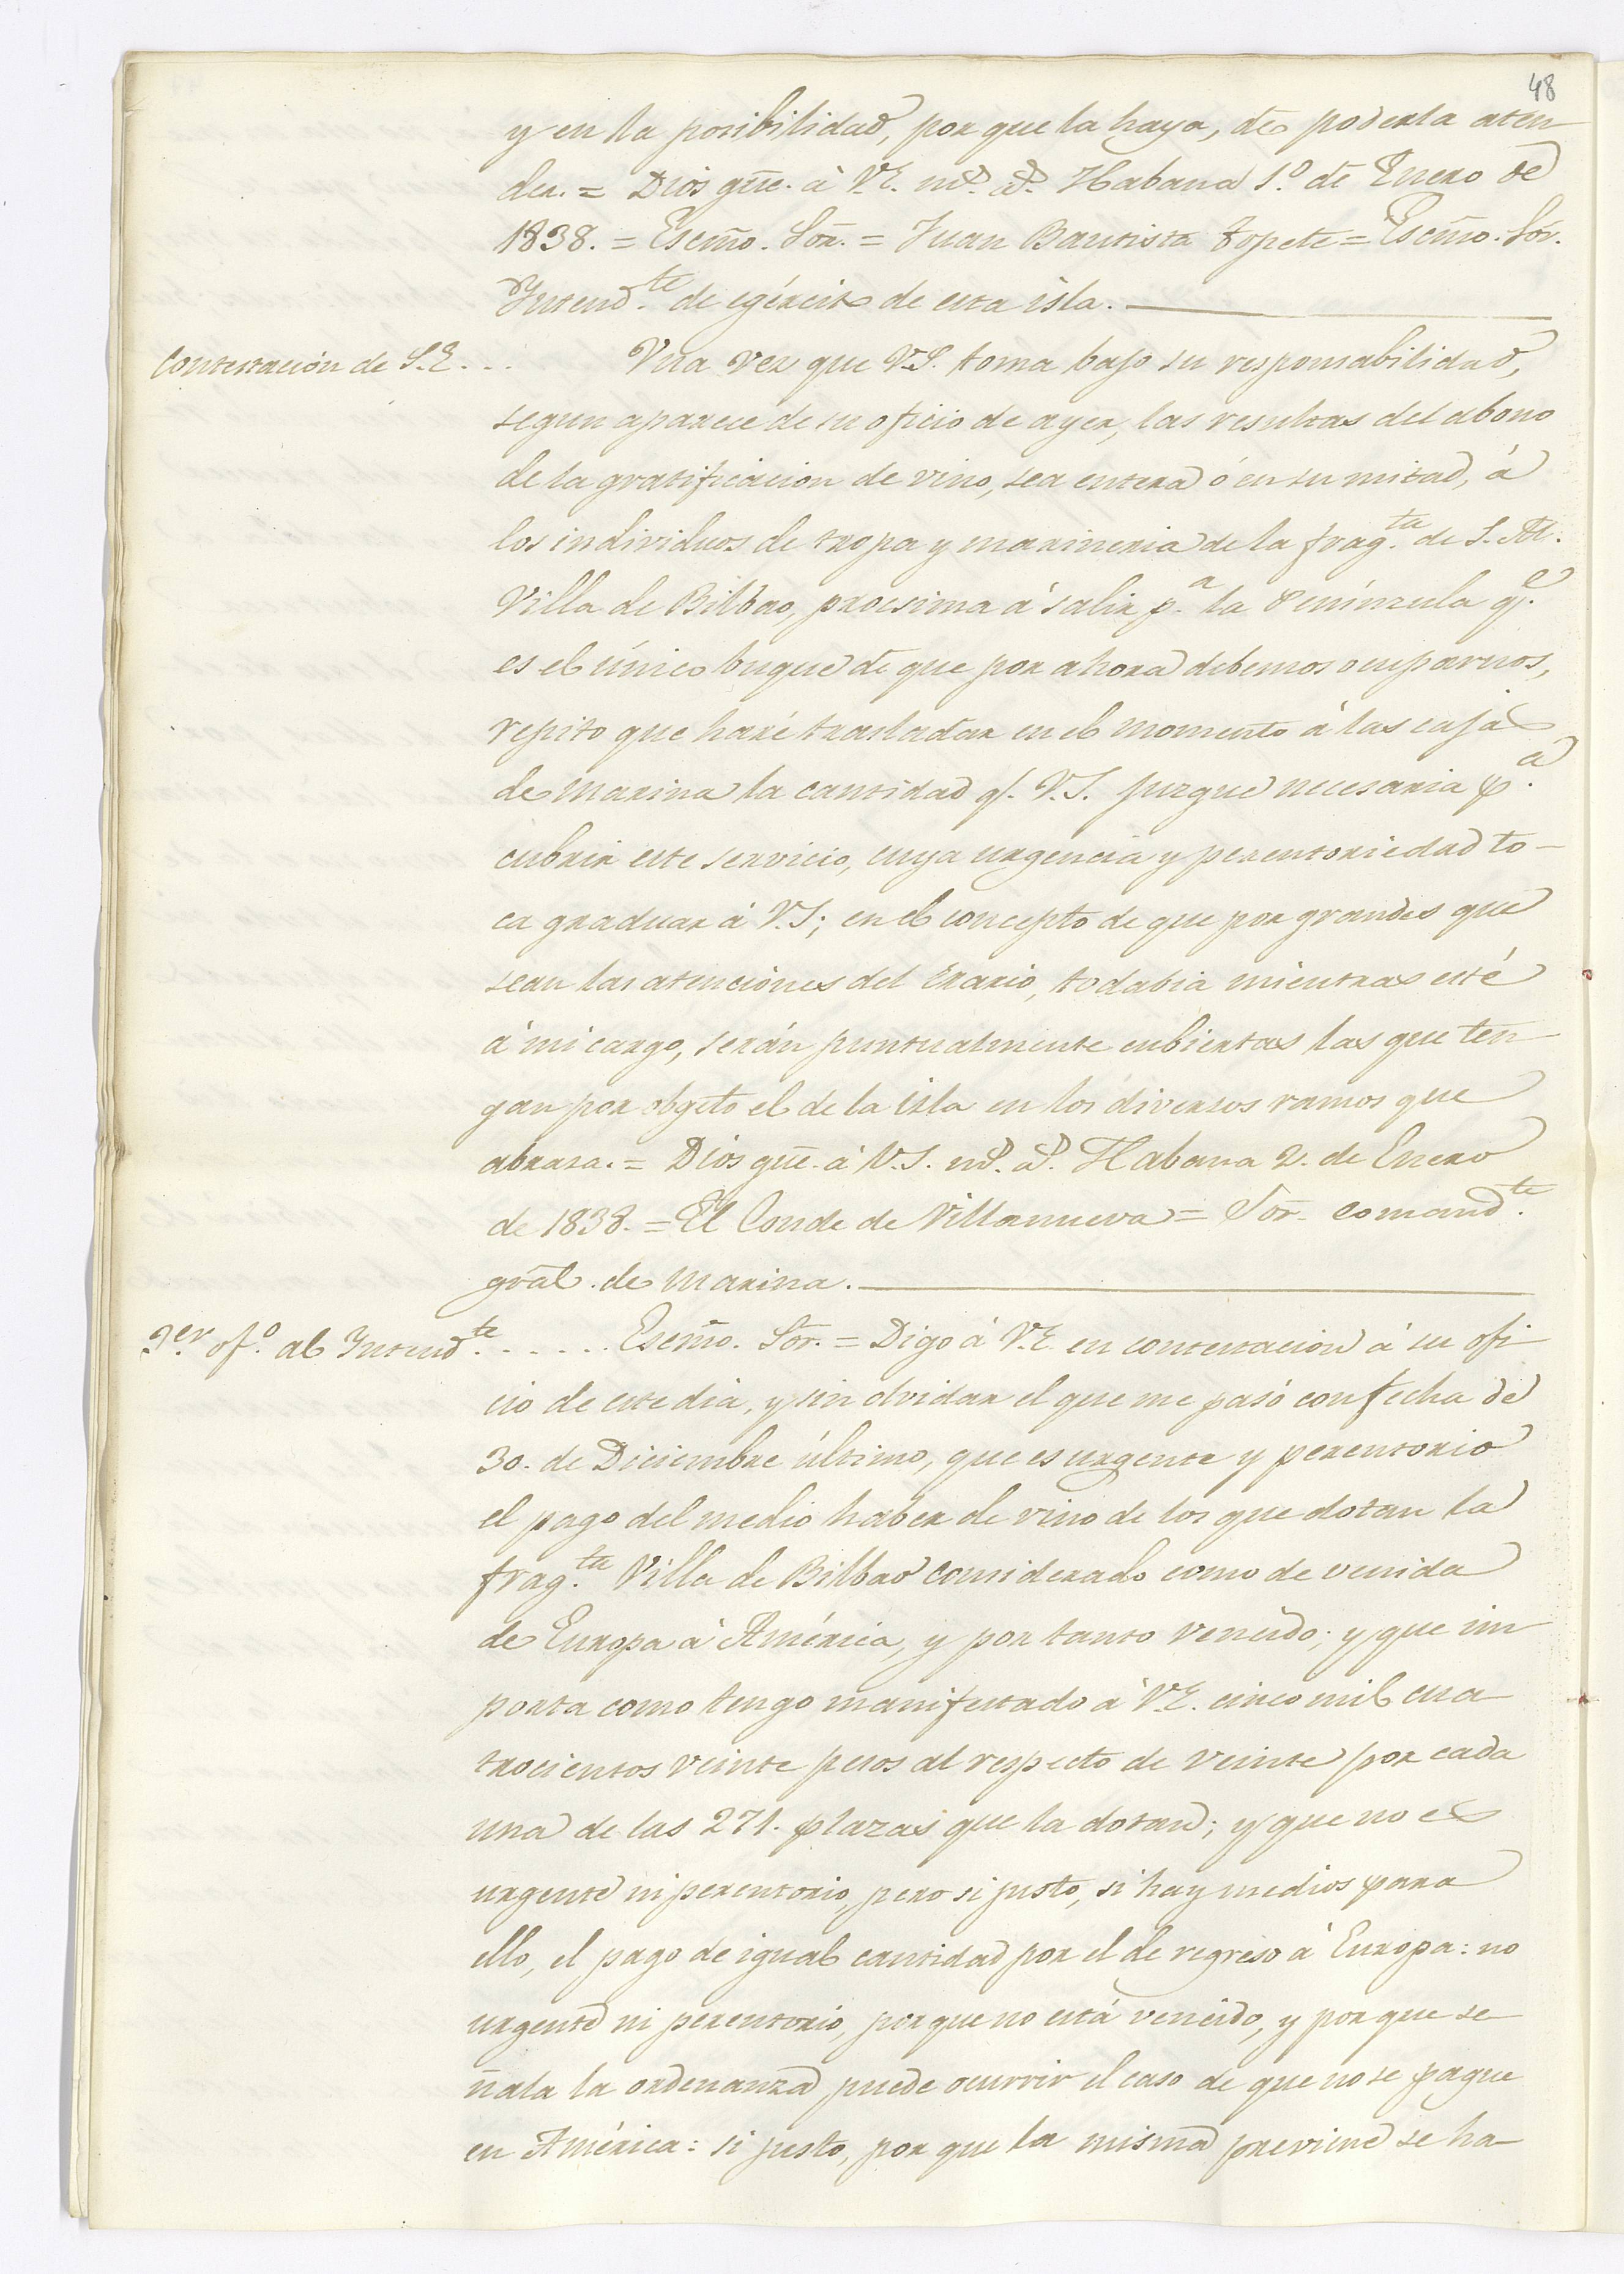 48
y en la posibilidad, por que la haya, de poderla aten
der. = Dios gūe. á V.E. m.s a.s Habana 1.º de Enero de
1838. = Escm̃o. Sõr. = Juan Bautista Topete = Escm̃o. Sõr.
Yntend.te de egército de esta isla.
Contestacion de S.E. . . Una vez que V.S. toma bajo su responsabilidad,
segun aparece de su oficio de ayer, las resultas del abono
de la gratificacion de vino, sea entera ó en su mitad, á
los individuos de tropa y marineria de la frag.ta de S. M.
Villa de Bilbao, procsima á salir p.a la Península q.e
es el único buque de que por ahora debemos ocuparnos,
repito que haré trasladar en el momento á las cajas
de Marina la cantidad q.e V.S. juzgue necesaria p.a
cubrir este servicio, cuya urgencia y perentoriedad to-
ca graduar á V.S; en el concepto de que por grandes que
sean las atenciones del Erario, todabia mientras esté
á mi cargo, serán puntualmente cubiertas las que ten-
gan por obgeto el de la isla en los diversos ramos que
abraza. = Dios gūe. á V.S. m.s a.s Habana 2. de Enero
de 1838. = El Conde de Villanueva = Sõr. Comand.te
grãl. de Marina.
3.er of.º al Yntend.te . . . . . . Escm̃o. Sõr. = Digo á V.E. en contestacion á su ofi
cio de este dia, y sin olvidar el que me pasó con fecha de
30. de Diciembre último, que es urgente y perentorio
el pago del medio haber de vino de los que dotan la
frag.ta Villa de Bilbao considerado como de venida
de Europa á América, y por tanto vencido; y que im
porta como tengo manifestado á V.E. cinco mil cua
trocientos veinte pesos al respecto de veinte por cada
una de las 271. plazas que la dotan; y que no es
urgente ni perentorio, pero si justo, si hay medios para
ello, el pago de igual cantidad por el de regreso á Europa: no
urgente ni perentorio, por que no está vencido, y por que se
ñala la ordenanza puede ocurrir el caso de que no se pague
en América: si justo, por que la misma previene se ha-